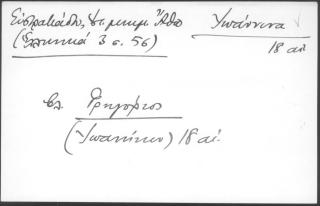 Εὐστρατιάδου, Ἁγ. μνημ. Ἄθω
(Ἑλληνικά 3 σ. 56)
Ἰωάννινα
18 αἰ.
βλ. Γρηγόριος
(Ἰωαννίνων) 18 αἰ.